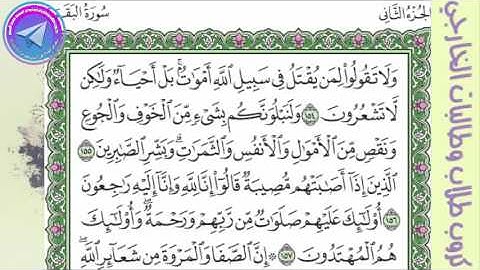 الجزء الثاني
سورة البق
وَلَا تَقُولُوا۟ لِمَن يُقْتَلُ فِى سَبِيلِ ٱللَّهِ أَمْوَٰتٌۢ ۚ بَلْ أَحْيَآءٌ وَلَٰكِن
لَّا تَشْعُرُونَ ١٥٤ وَلَنَبْلُوَنَّكُم بِشَىْءٍ مِّنَ ٱلْخَوْفِ وَٱلْجُوعِ
وَنَقْصٍ مِّنَ ٱلْأَمْوَٰلِ وَٱلْأَنفُسِ وَٱلثَّمَرَٰتِ ۗ وَبَشِّرِ ٱلصَّٰبِرِينَ ١٥٥
ٱلَّذِينَ إِذَآ أَصَٰبَتْهُم مُّصِيبَةٌ قَالُوٓا۟ إِنَّا لِلَّهِ وَإِنَّآ إِلَيْهِ رَٰجِعُونَ
١٥٦ أُو۟لَٰٓئِكَ عَلَيْهِمْ صَلَوَٰتٌ مِّن رَّبِّهِمْ وَرَحْمَةٌ ۖ وَأُو۟لَٰٓئِكَ
هُمُ ٱلْمُهْتَدُونَ ١٥٧ ۞ إِنَّ ٱلصَّفَا وَٱلْمَرْوَةَ مِن شَعَآئِرِ ٱللَّهِ ۖ
كروب طلاب وطالبات الخارجي